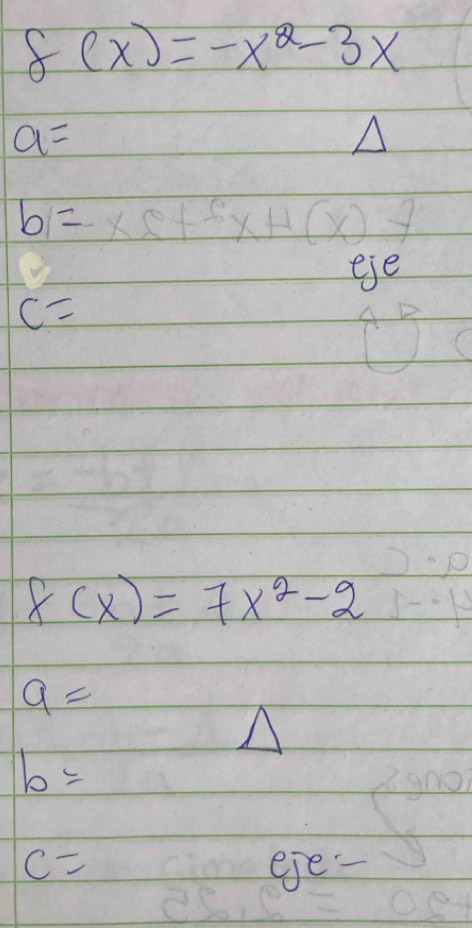 f(x) = -x² - 3x
a= Δ
b=
eje
c=
f(x) = 7x² - 2
a=
Δ
b=
c= eje=